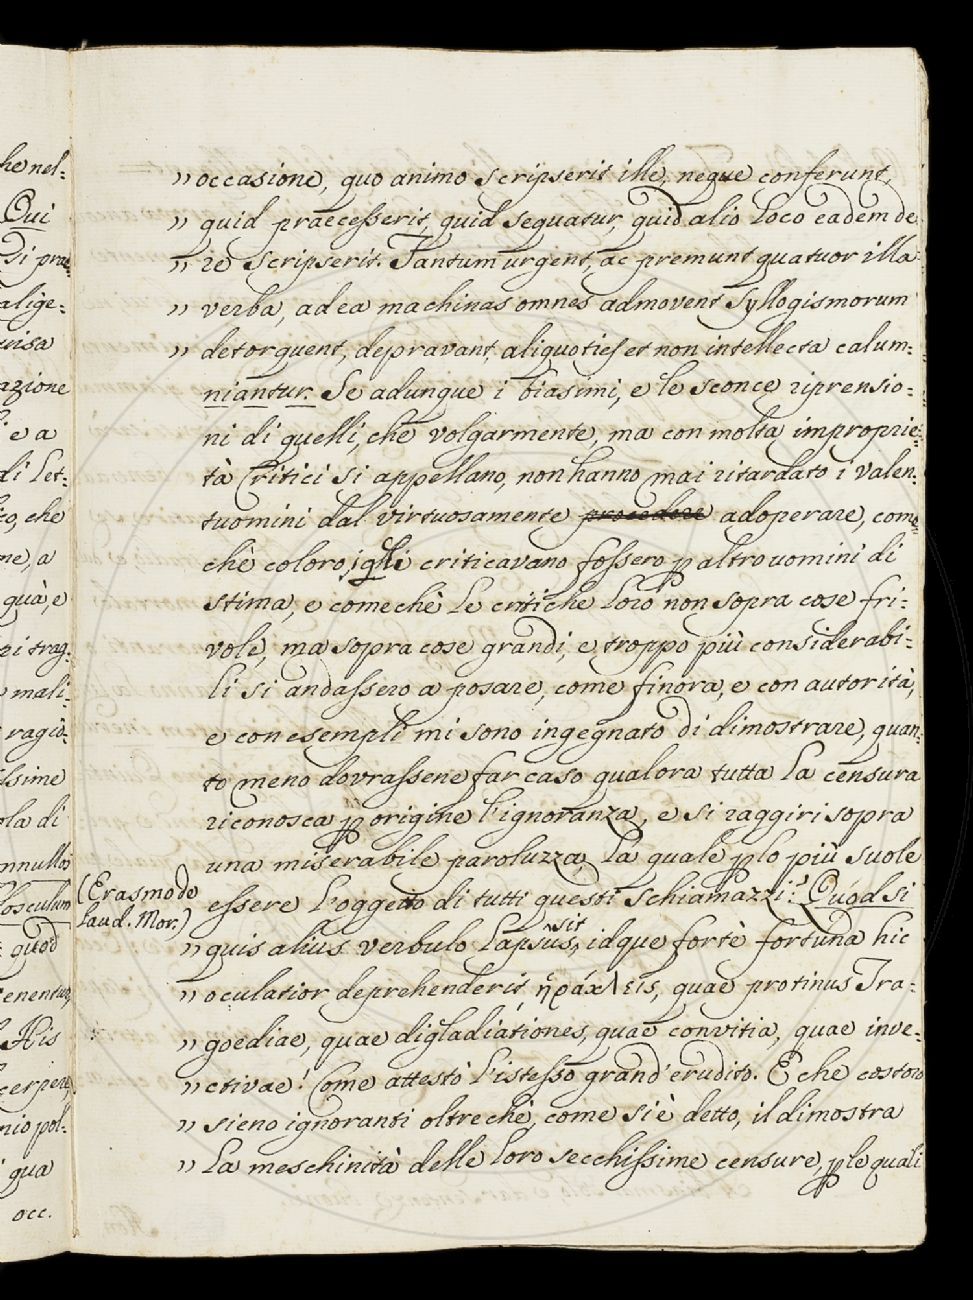 he nel-
Qui
di prae
alige-
uisa
azione
i e a
di Let-
co, che
me, a
quà, e
ri trag-
mali-
ragio-
ssime
ola di
nnullos
losculum
quod
enentur,
His
cerpere,
nio pol-
qua
occ.
„ occasione, quo animo scripserit ille, neque conferunt,
„ quid praecesserit, quid sequatur, quid alio loco eadem de
„ re scripserit. Tantum urgent, ac premunt quatuor illa
„ verba, ad ea machinas omnes admovent syllogismorum
„ detorquent, depravant, aliquoties et non intellecta calum-
niantur. Se adunque i biasimi, e le sconce riprensio-
ni di quelli, che volgarmente, ma con molta improprie-
tà Critici si appellano, non hanno mai ritardato i valen-
tuomini dal virtuosamente procedere adoperare, come
chè coloro, i qli criticavano fossero p altro uomini di
stima, e comechè le critiche loro non sopra cose fri-
vole, ma sopra cose grandi, e troppo più considerabi-
li si andassero a posare, come finora, e con autorità,
e con esempli mi sono ingegnato di dimostrare, quan-
to meno dovrassene far caso qualora tutta la censura
riconosca p origine l'ignoranza, e si raggiri sopra
una miserabile paroluzza, la quale p lo più suole
essere l'oggetto di tutti questi schiamazzi: Quod si
(Erasmo de
laud. Mor.)
„ quis alius verbulo lapsus sit, idque fortè fortuna hic
„ oculatior deprehenderit, ἡράκλεις, quae protinus Tra-
„ goediae, quae digladiationes, quae convitia, quae inve-
„ ctivae! Come attestò l'istesso grand'erudito. E che costoro
„ sieno ignoranti oltrechè, come si è detto, il dimostra
„ la meschinità delle loro secchissime censure, p le quali